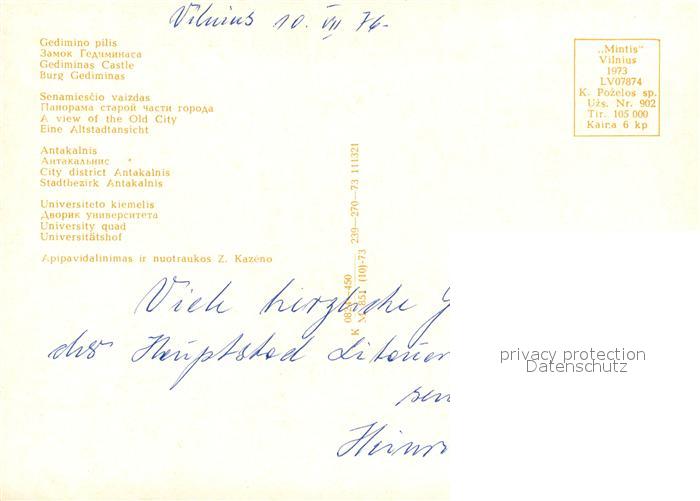 Vilnius 10. VII 76.
Gedimino pilis
Замок Гедиминаса
Gediminas Castle
Burg Gediminas
Senamiesčio vaizdas
Панорама старой части города
A view of the Old City
Eine Altstadtansicht
Antakalnis
Антакальнис
City district Antakalnis
Stadtbezirk Antakalnis
Universiteto kiemelis
Дворик университета
University quad
Universitätshof
Apipavidalinimas ir nuotraukos Z. Kazėno
„Mintis“
Vilnius
1973
LV07874
K. Poželos sp.
Užs. Nr. 902
Tir. 105 000
Kaina 6 kp
239—270—73 111321
(10)-73
Viele herzliche
der Hauptstad
privacy protection
Datenschutz